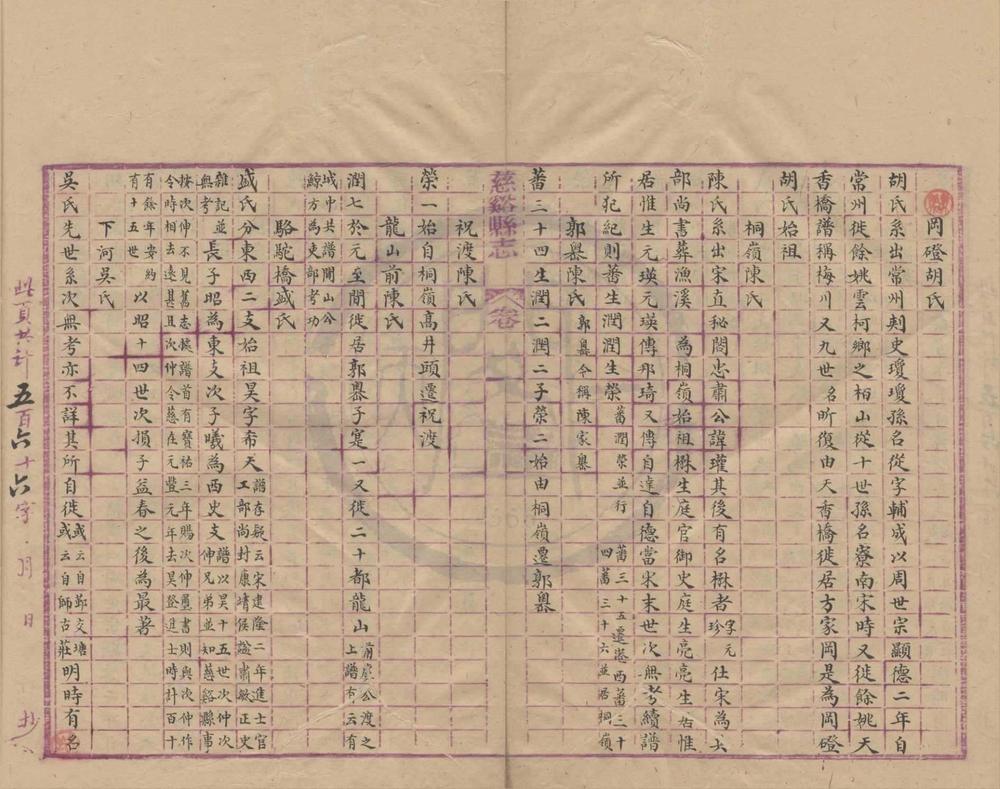 岡磴胡氏
胡氏系出常州刺史瓊瓊孫名從字輔成以周世宗顯德二年自
常州徙餘姚雲柯鄉之栢山從十世孫名寮南宋時又徙餘姚天
香橋譜稱梅川又九世名昕復由天香橋徙居方家岡是為岡磴
胡氏始祖
桐嶺陳氏
陳氏系出宋直秘閣忠肅公諱瓘其後有名楙者字元珍仕宋為大
部尚書葬漁溪為桐嶺始祖楙生庭官御史庭生亮亮生佑惟
居惟生元瑛元瑛傳邦琦又傳自達自德當宋末世次無考續譜
所犯紀則蕃生潤潤生榮蕃潤榮並行蕃三十五遷慈西蕃三十四蕃三十六並居桐嶺
郭墺陳氏郭墺今稱陳家墺
蕃三十四生潤二潤二子榮二始由桐嶺遷郭墺
慈谿縣志
卷
祝渡陳氏
榮一始自桐嶺高井頭遷祝渡
龍山前陳氏
潤七於元至間徙居郭墺子寔一又徙二十都龍山前岸公渡之上譜有云有
城中共譜間山分鯨方為吏部考功
駱駝橋盛氏
盛氏分東西二支始祖昊字希天譜存疑云宋建隆二年進士官工部尚封康靖侯諡肅敏正史
雜記並無考長子昭為東支次子曦為西史支譜以昊十五世次仲次伸兄弟並知慈谿縣事
按次伸不見舊志候譜首有寶祐三年賜次仲璽書則與次伸作令時相去遠甚且次仲令慈在元豐元年去昊登進士時計百十
有餘年安約有十五世以昭十四世次損子益春之後為最著
下河吳氏
吳氏先世系次無考亦不詳其所自徙或云自鄞交塘或云自師古莊明時有名
此頁共計五百六十六字 月 日 抄